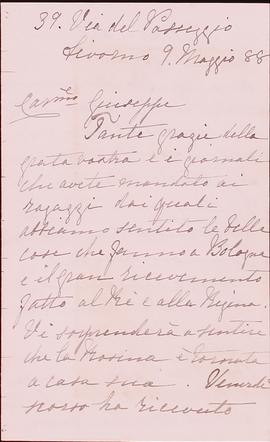 39. Via del Passeggio
Livorno 9. Maggio 88
Cariᵐᵒ Giuseppe
Tante grazie della
grata vostra e i giornali
che avete mandato ai
ragazzi dai quali
abbiamo sentito le belle
cose che fanno a Bologna
e il gran ricevimento
fatto al Re e alla Regina.
Vi sorprenderà a sentire
che la Rosina è tornata
a casa sua. Venerdì
scorso ha ricevuto